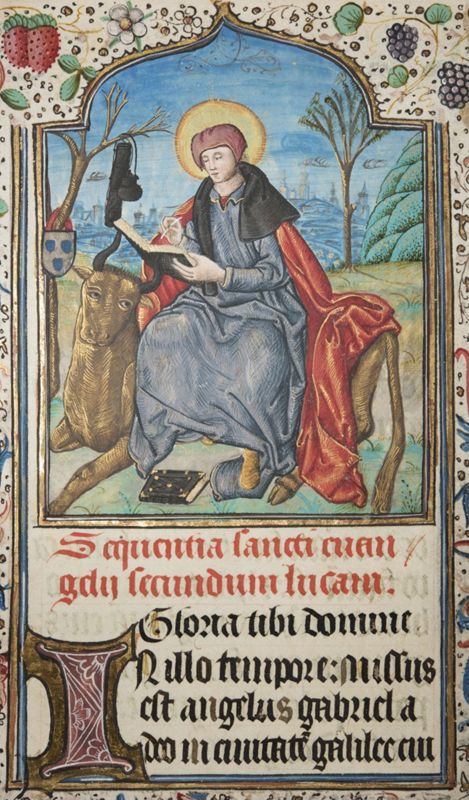 Sequentia sancti euan
gelij secundum lucam.
Gloria tibi domine
IN illo tempore: missus
est angelus gabriel a
deo in ciuitatē galilee cui